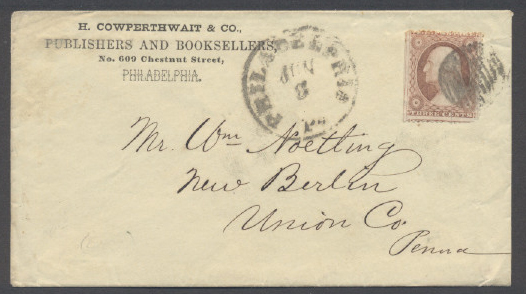 H. COWPERTHWAIT & CO.,
PUBLISHERS AND BOOKSELLERS,
No. 609 Chestnut Street,
PHILADELPHIA.
PHILADELPHIA
JUN
8
Pa
THREE CENTS
Mr. Wm Noetling
New Berlin
Union Co.
Penna